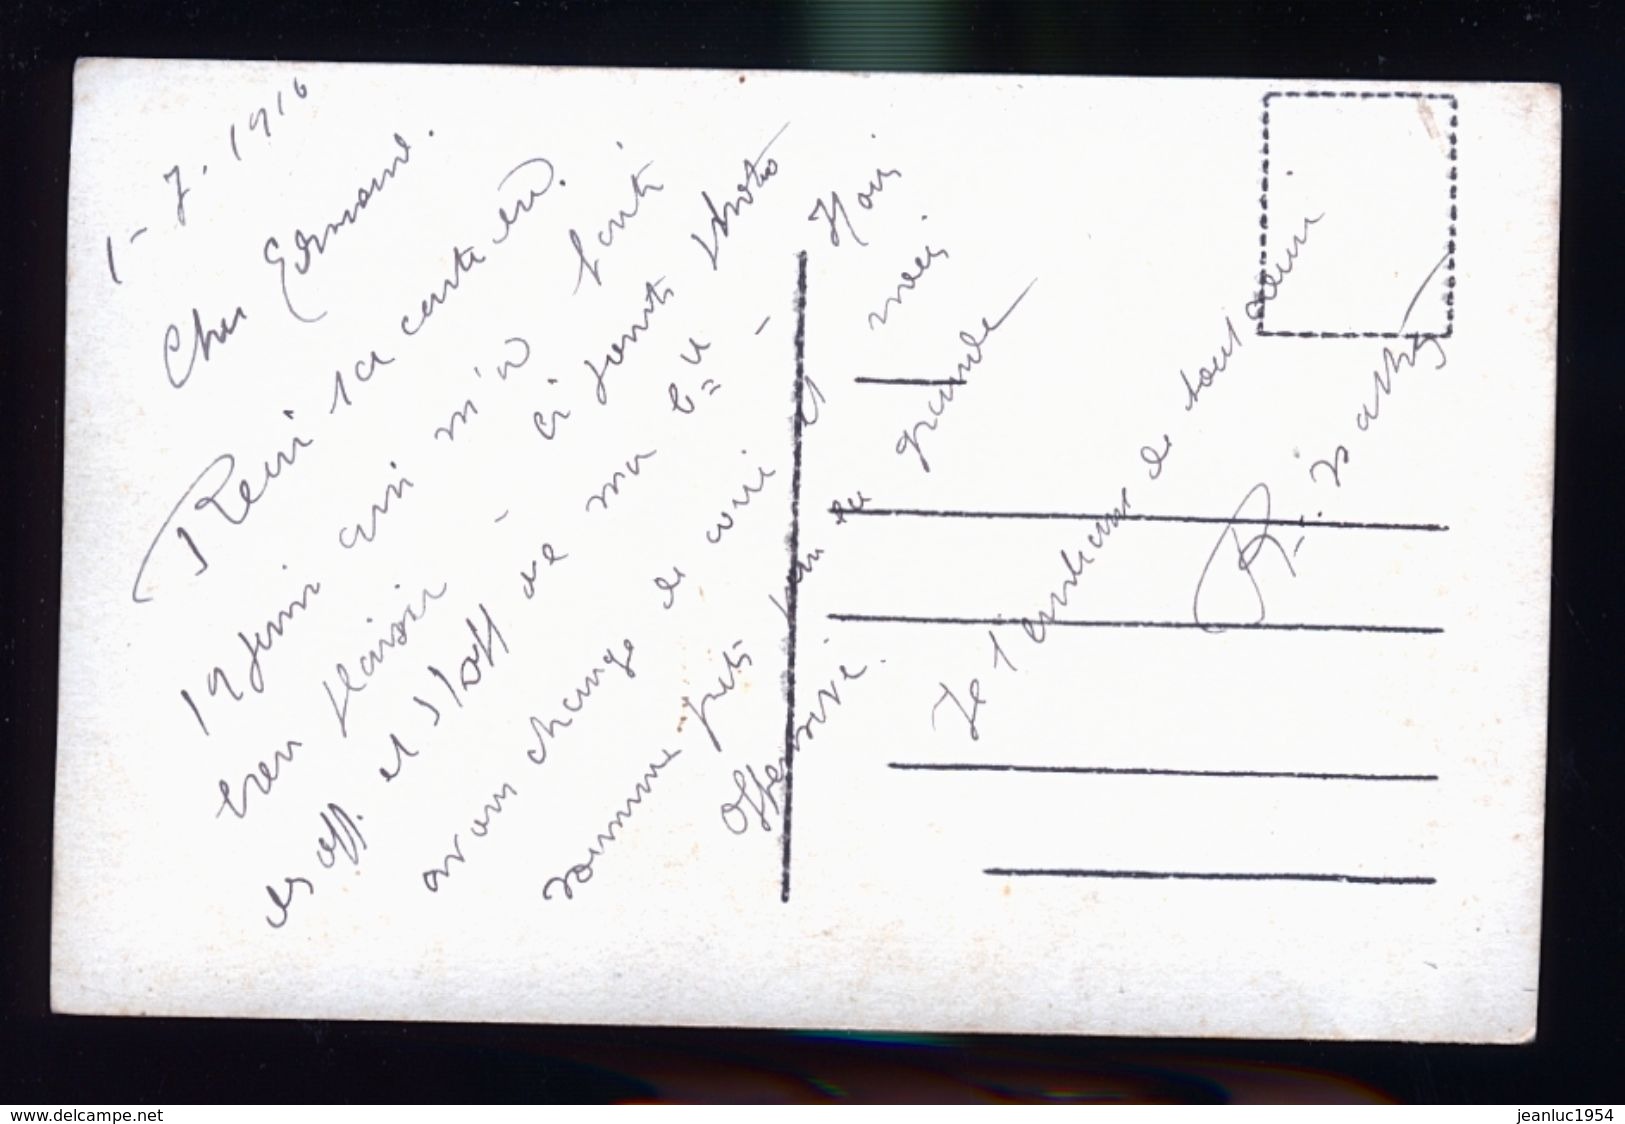 1-7.1916
Cher Edmond.
Reçu ta carte du
19 Juin qui m'a fait
bien plaisir - Ci joint photo
des off. et s/off de ma Cie -
avons changé de coin et
sommes prêts pour la grande
Offensive.
Je t'embrasse de tout coeur
www.delcampe.net
jeanluc1954